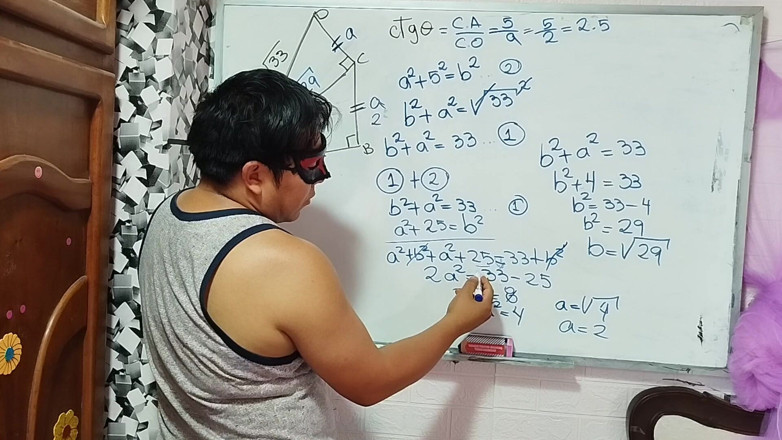 D
a
√33
C
√29
a
2
B
ctgθ = CA/CO = 5/a = 5/2 = 2.5
a²+5²=b² ... ②
b²+a²=√33²
b²+a²=33 ... ①
①+②
b²+a²=33 ... ①
a²+25=b²
a²+b²+a²+25=33+b²
2a²=33-25
=8
=4
b²+a²=33
b²+4=33
b²=33-4
b²=29
b=√29
a=√4
a=2